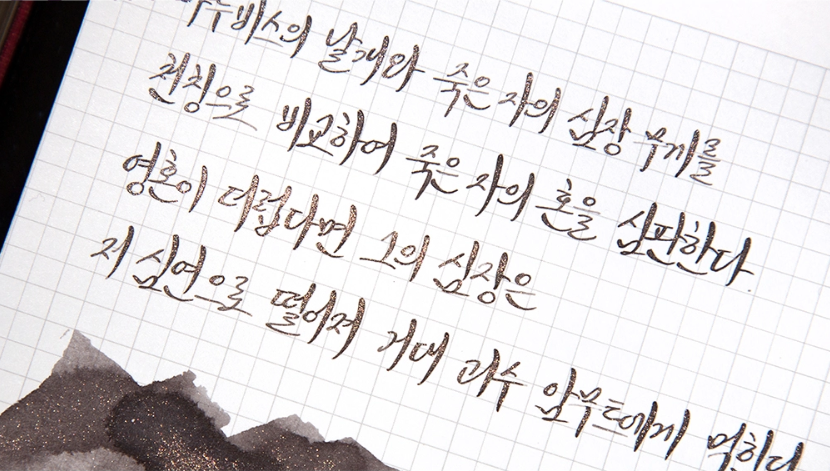 아누비스의 날개와 죽은 자의 심장 무게를
천칭으로 비교하여 죽은 자의 혼을 심판한다.
영혼이 더럽다면 그의 심장은
저 심연으로 떨어져 거대 괴수 암무트에게 먹힌다